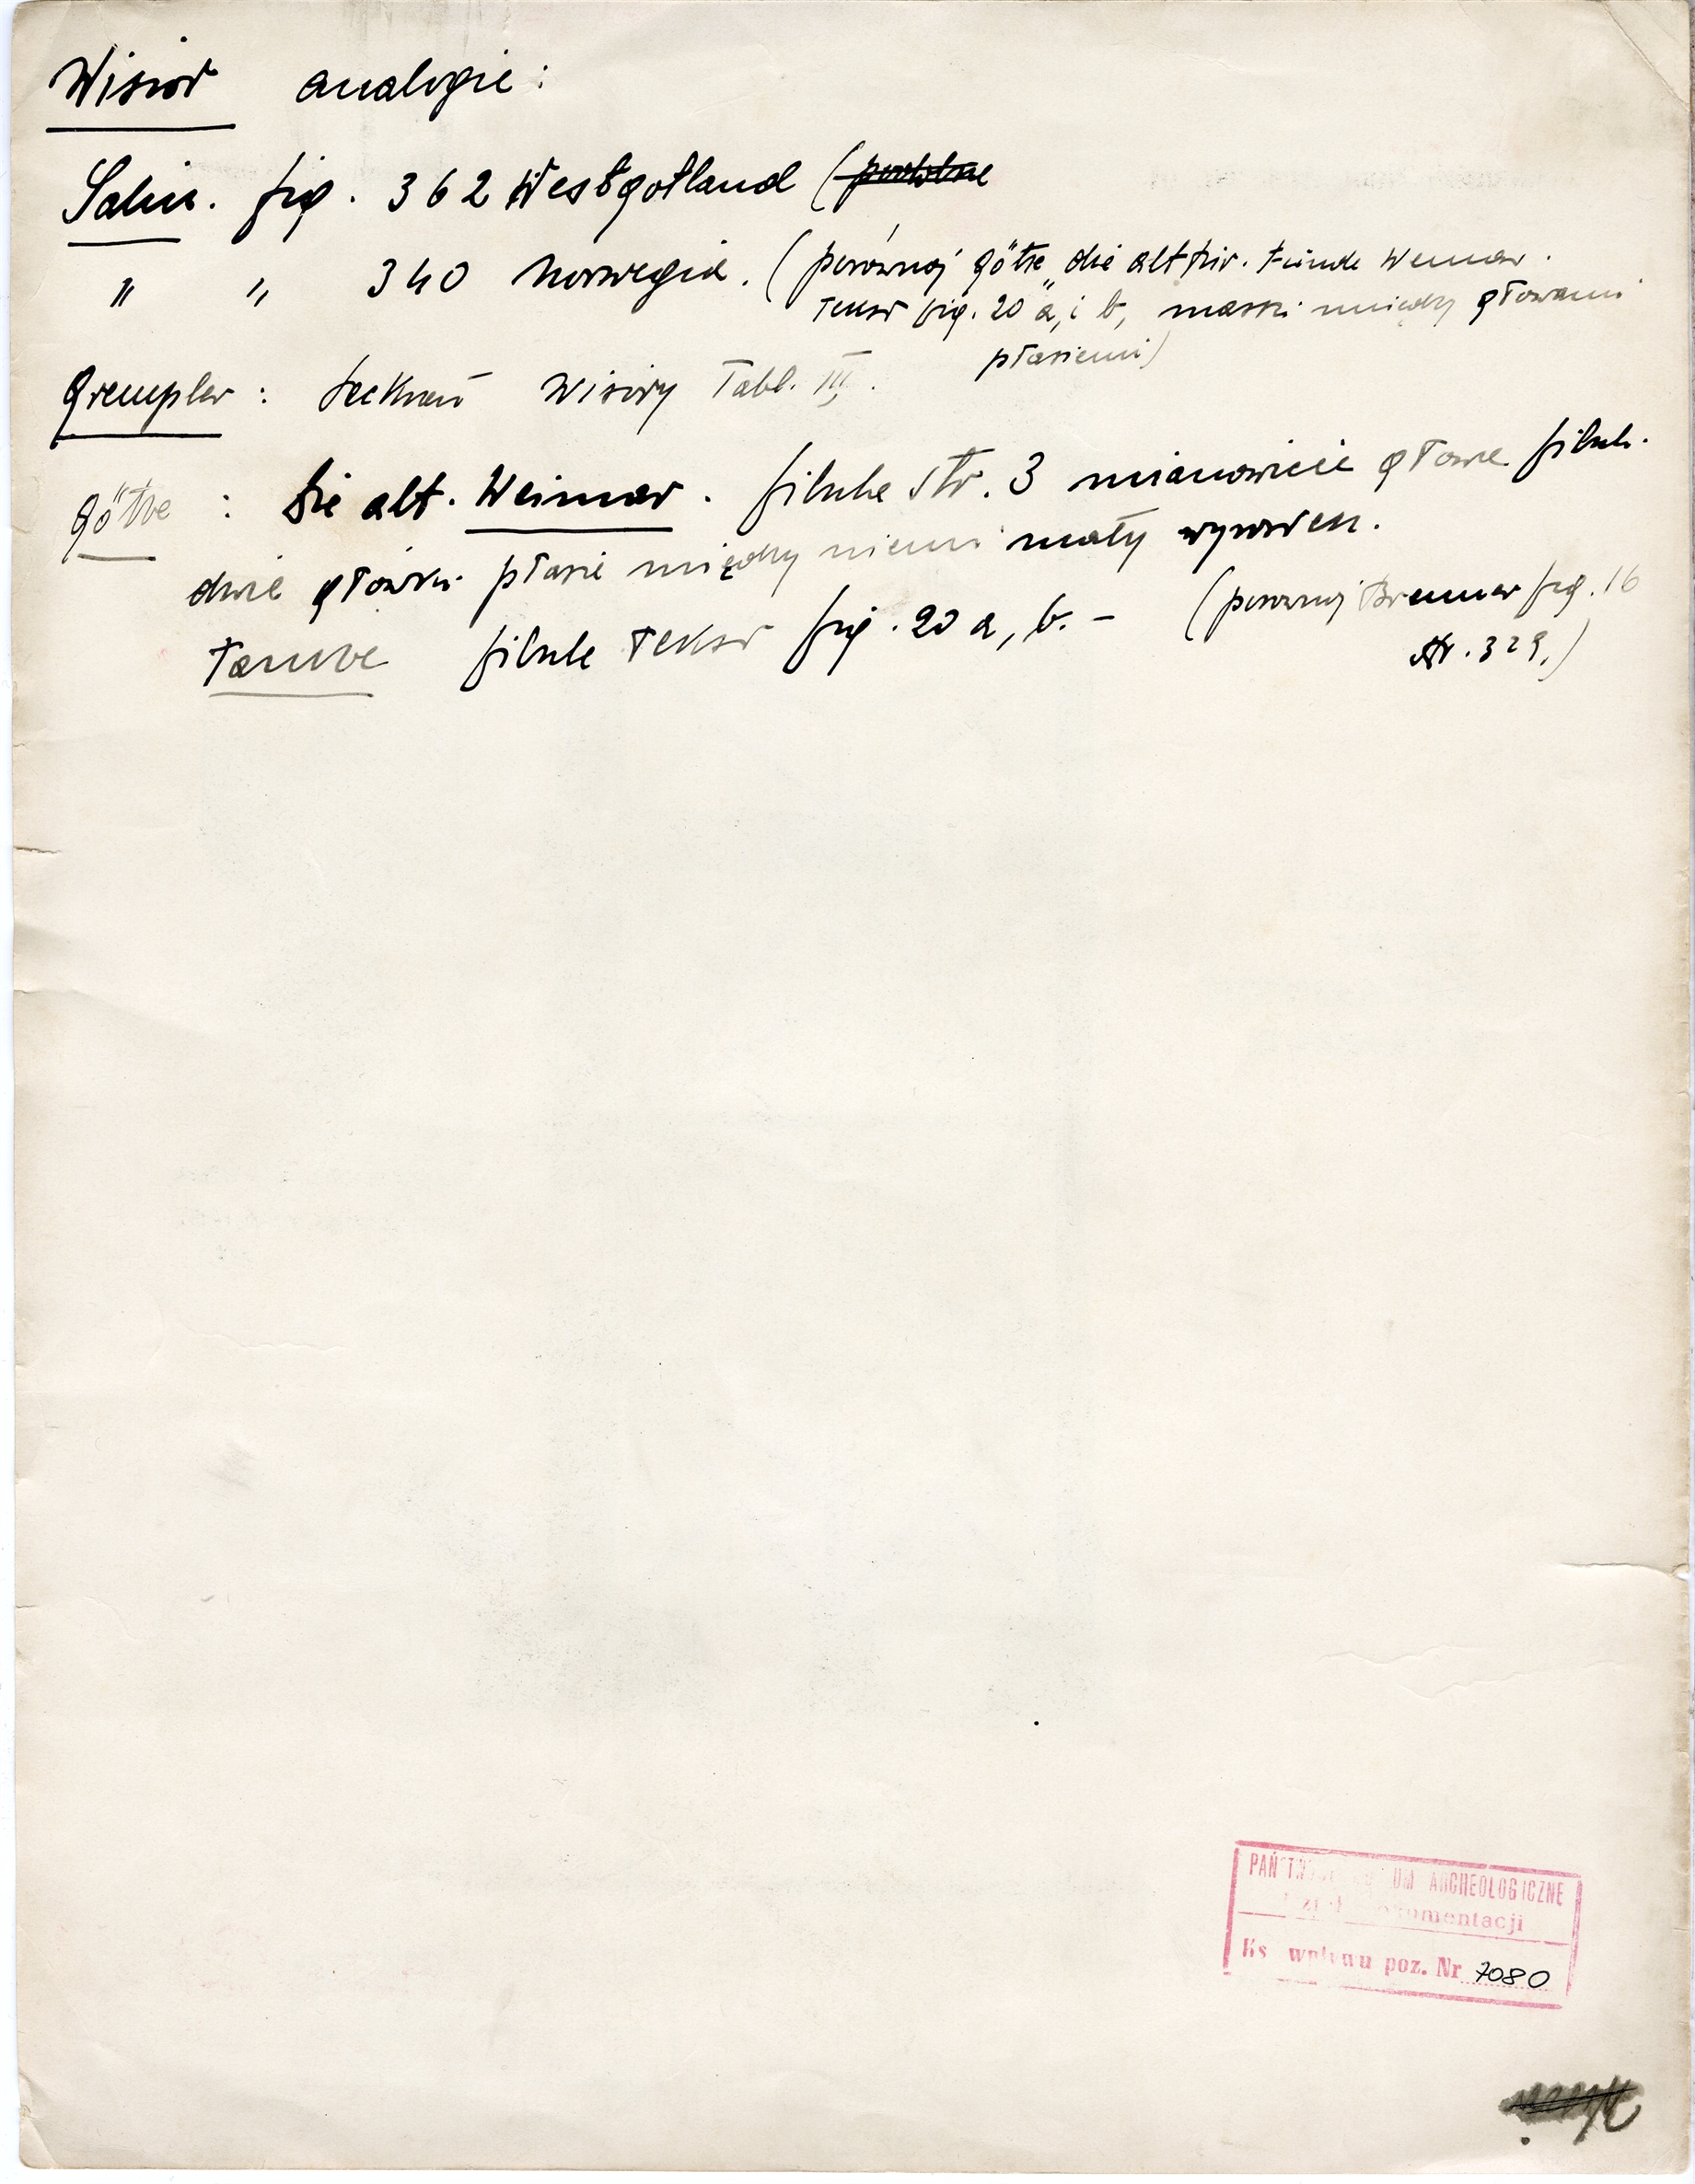 Wisior analogie:
Salin. fig. 362 Westgotland (
" " 340 Norwegia. (porównaj Götze „die altthür. Funde Weimar.
Tekst fig. 20 a, i b, maski między głowami
ptasiemi)
Grempler: Sackrau Wisiory Tabl. III.
Götze: Die alt. Weimar. fibule str. 3 mianowicie głowa fibuli.
dwie główki ptasie między niemi mały wyrostek.
Tamże fibule Tekst fig. 20 a, b. – (porównaj Brenner fig. 16
str. 329.)
PAŃSTWOWE MUZEUM ARCHEOLOGICZNE
Dział Dokumentacji
Ks wpływu poz. Nr 7080